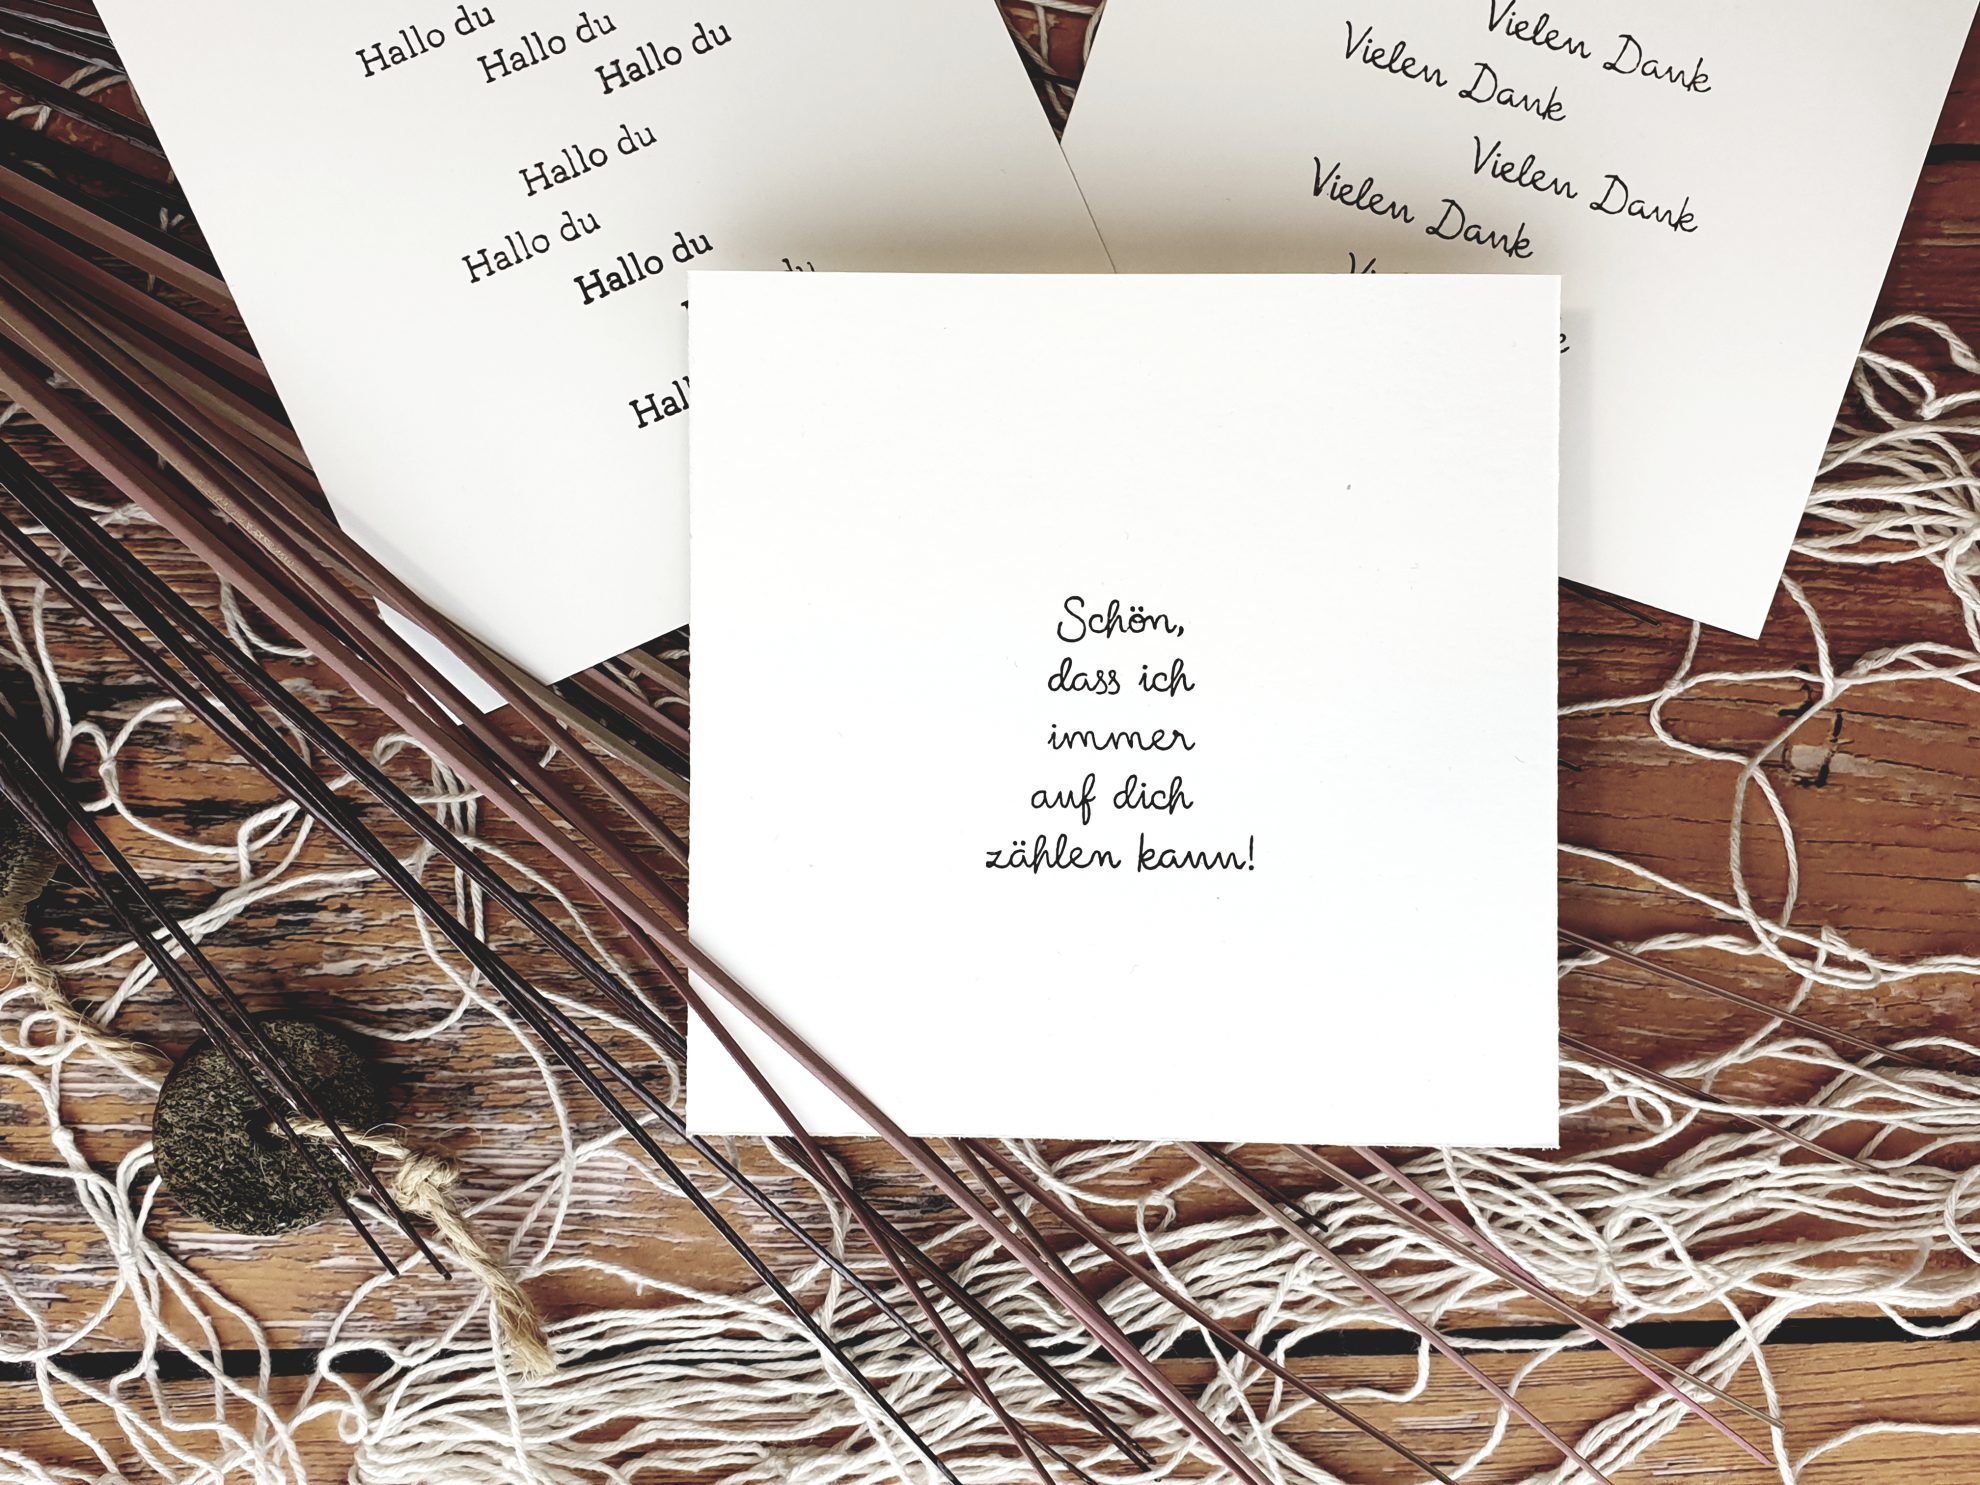 Hallo du
Hallo du
Hallo du
Hallo du
Hallo du
Hallo du
du
Vielen Dank
Vielen Dank
Vielen Dank
Vielen Dank
Schön,
dass ich
immer
auf dich
zählen kann!